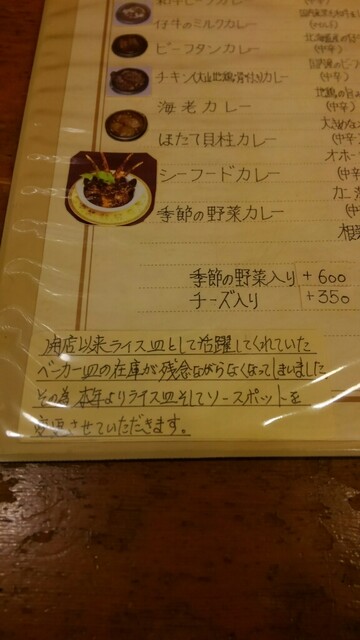 仔牛のミルクカレー
ビーフタンカレー
(中辛)
チキン(大山地鶏骨付き)カレー
(中辛)
海老カレー
ほたて貝柱カレー
(中辛)
シーフードカレー
季節の野菜カレー
季節の野菜入り +600
チーズ入り +350
開店以来ライス皿として活躍してくれていた
ベーカー皿の在庫が残念ながらなくなってしまいました
その為 本年よりライス皿そしてソースポットを
変更させていただきます。